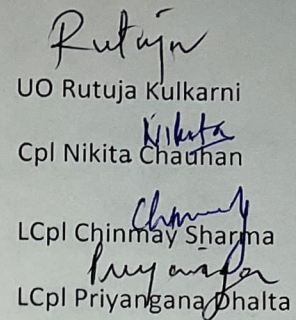 Rutuja
UO Rutuja Kulkarni
Nikita
Cpl Nikita Chauhan
LCpl Chinmay Sharma
Priyangana
LCpl Priyangana Dhalta